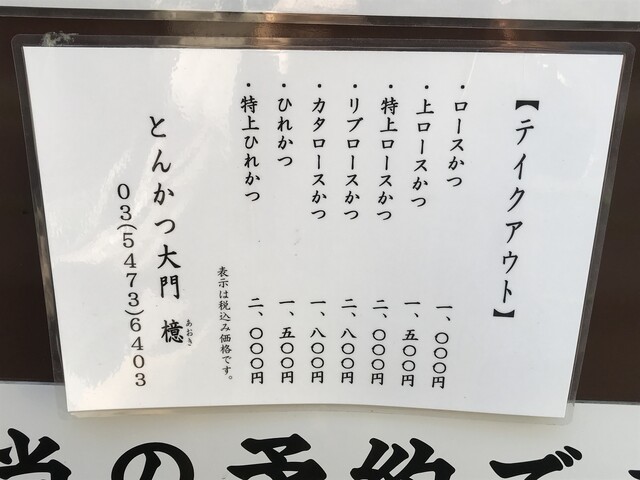 【テイクアウト】
・ロースかつ 一、〇〇〇円
・上ロースかつ 一、五〇〇円
・特上ロースかつ 二、〇〇〇円
・リブロースかつ 二、八〇〇円
・カタロースかつ 一、八〇〇円
・ひれかつ 一、五〇〇円
・特上ひれかつ 二、〇〇〇円
表示は税込み価格です。
とんかつ大門 檍
あおき
03(5473)6403
の予約で